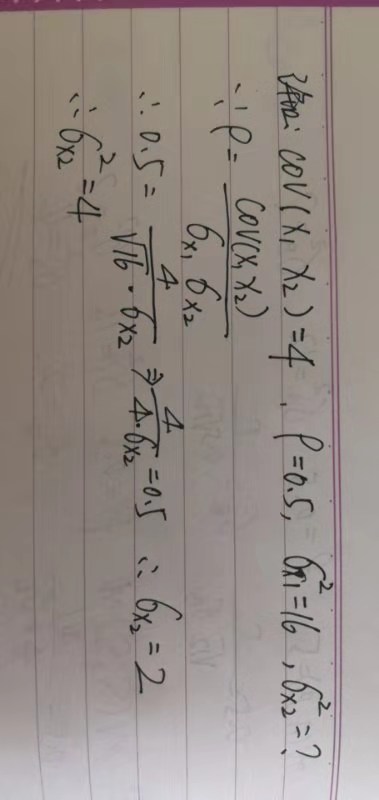 已知: COV(X₁ X₂)=4 、 ρ=0.5, σ²x₁=16, σ²x₂=?
∵ ρ = COV(X₁X₂) / σx₁ σx₂
∴ 0.5 = 4 / √16 · σx₂ ⇒ 4 / 4·σx₂ = 0.5 ∴ σx₂ = 2
∴ σ²x₂ = 4